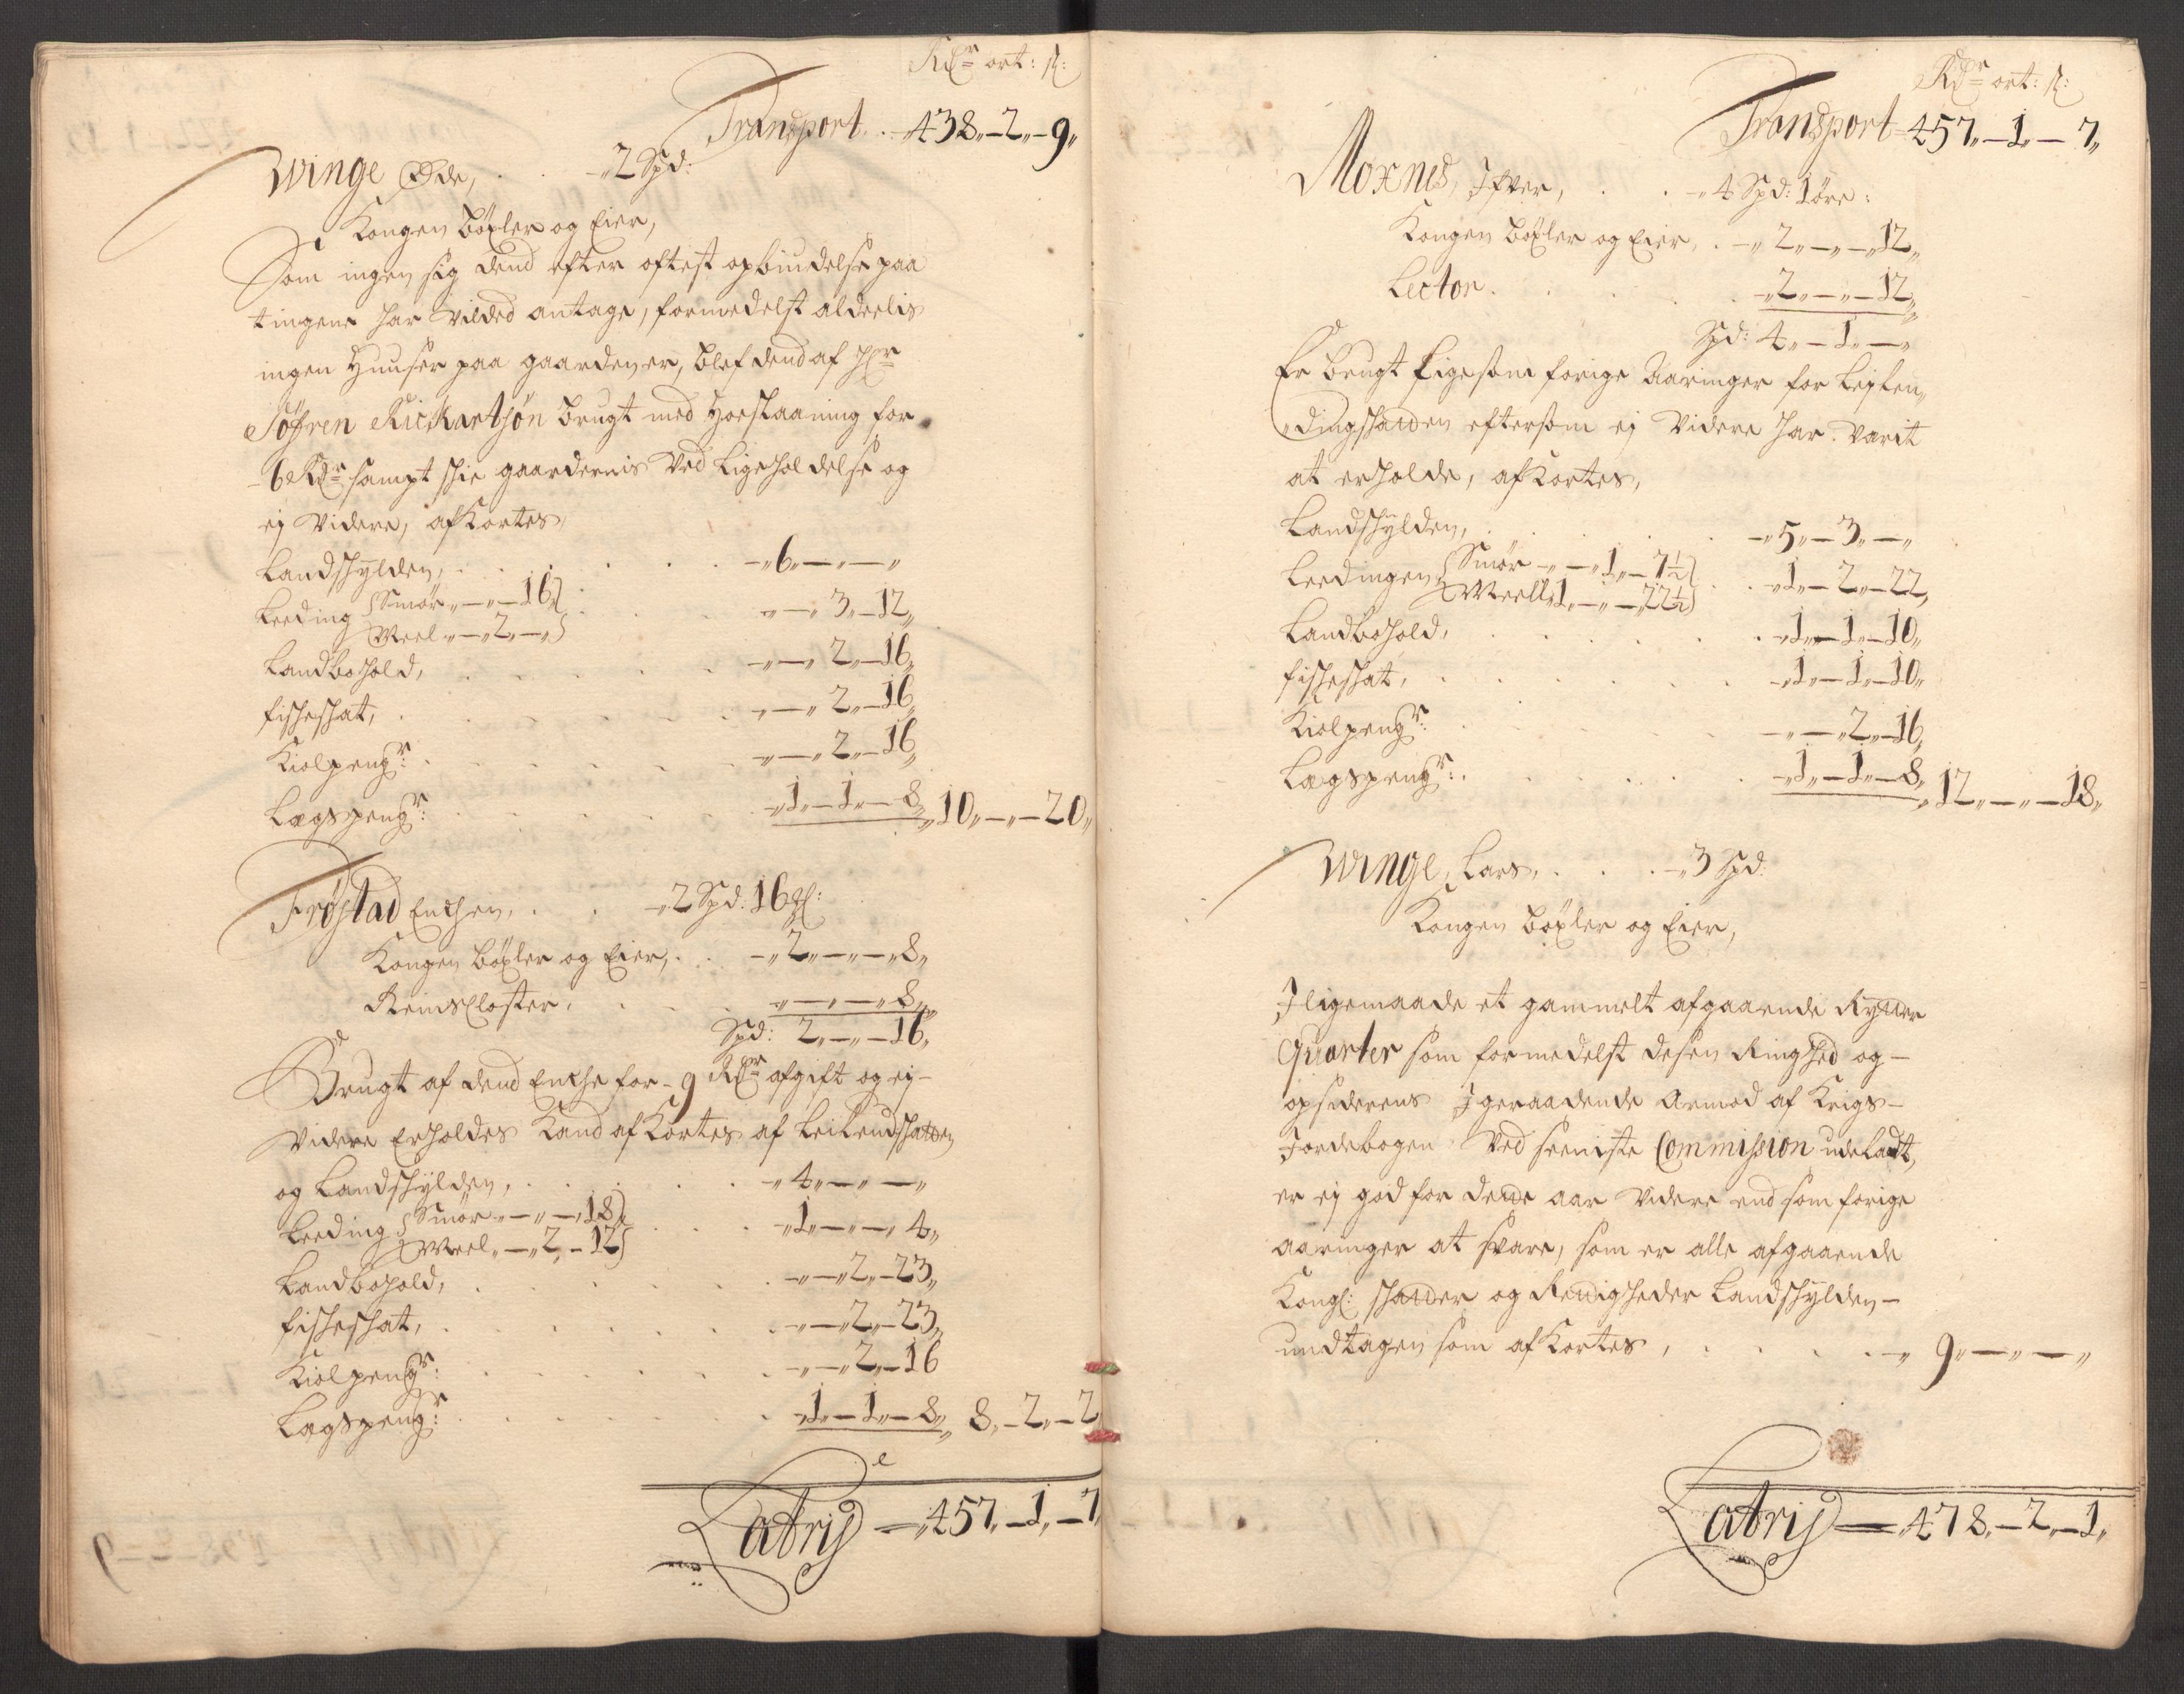 Rdr ort: ß:
Transport. - 438,, - 2,, - 9,,
Winge Øde, . . - 2 Spd:
Kongen böxler og Eier,
Som ingen sig dend efter oftest opbiudelse paa
tingene har Vilded antage, formedelst alderlis
ingen Huuser paa gaarden er, blef dend af Hr
Söfren Rickartsön brugt med Hoeslaaning for
6 Rdr sampt schie gaardernis Ved Ligeholdelse og
ej Videre, afKortes,
Landschylden, . . . - ,, 6,, - ,, - ,,
Leeding { Smør ,, - ,, - 16 } . . ,, - ,, 3,, - 12,,
Meel ,, - ,, 2,, - ,, }
Landbohold, . . . ,, - ,, 2,, - 16,,
fischeschat, . . . ,, - ,, 2,, - 16,,
Kiolpengr: . . . ,, - ,, 2,, - 16,,
Lægspengr: . . . ,, 1,, - 1,, - 8,, 10,, - ,, - 20,,
Frøstad Enchen, . . - 2 Spd: 16 ℔:
Kongen böxler og Eier, . . - ,, 2,, - ,, - ,, 8,,
Reinscloster, . . . ,, - ,, - ,, 8,,
Spd: 2,, - ,, - 16,,
Brugt af dend Enche for - 9 Rdr afgift og ej -
Videre Erholdes Kand afKortes af Leilendschatten
og Landschylden, . . . - ,, 4,, - ,, - ,,
Leeding { Smør ,, - ,, - ,, 18 } . . . - ,, 1,, - ,, - ,, 4,,
Meel ,, - ,, 2,, - 12 }
Landbohold, . . . - ,, - ,, 2,, - 23,,
fischeschat, . . . - ,, - ,, 2,, - 23,,
Kiolpengr: . . . ,, - ,, 2,, - 16
Lægspengr: . . . ,, 1,, - 1,, - 8,, 8,, - 2,, - 2
Latris - ,, 457,, - 1,, - 7,,
Rdr ort: ß:
Transport - 457,, - 1,, - 7,,
Moxnes, Ifver, . . - ,, 4 Spd: 1 öre:
Kongen böxler og Eier, . - ,, 2,, - ,, - ,, 12,,
Lector. . . . - ,, 2,, - ,, - 12,,
Spd: 4,, - 1,, - ,,
Er brugt Ligesom forige Aaringer for Leylen,,
,,dingschatten eftersom ej Videre har Varit
at erholde, afKortes,
Landschylden, . . . - ,, 5,, - 3,, - ,,
Leedingen { Smør ,, - ,, 1,, - 7½ } . . ,, 1,, - 2,, - 22,,
Meell ,, 1,, - ,, - ,, 22½ }
Landbohold, . . . - ,, 1,, - 1,, - 10,,
fischeschat, . . . - ,, 1,, - 1,, - 10,,
Kiolpengr: . . . - ,, - ,, 2,, - 16,,
Lægspengr: . . . - ,, 1,, - 1,, - 8,, 12,, - ,, - 18,,
Winge, Lars, . . . - ,, 3 Spd:
Kongen böxler og Eier,
Iligemaade et gammelt afgaaende Rytter
Quarter som formedelst desen Ringhed og -
opsiderens Igeraadende Armod af Krigs -
Jordebogen Ved seeniste Commission udeladt,
er ej god for dette aar Videre end som forige
aaringer at svare, som er alle afgaaende
Kongl: schatter og Rettigheder Landschylden -
undtagen som afKortes, . . . - ,, 9,, - ,, - ,,
Latris - 478,, - 2,, - 1,,